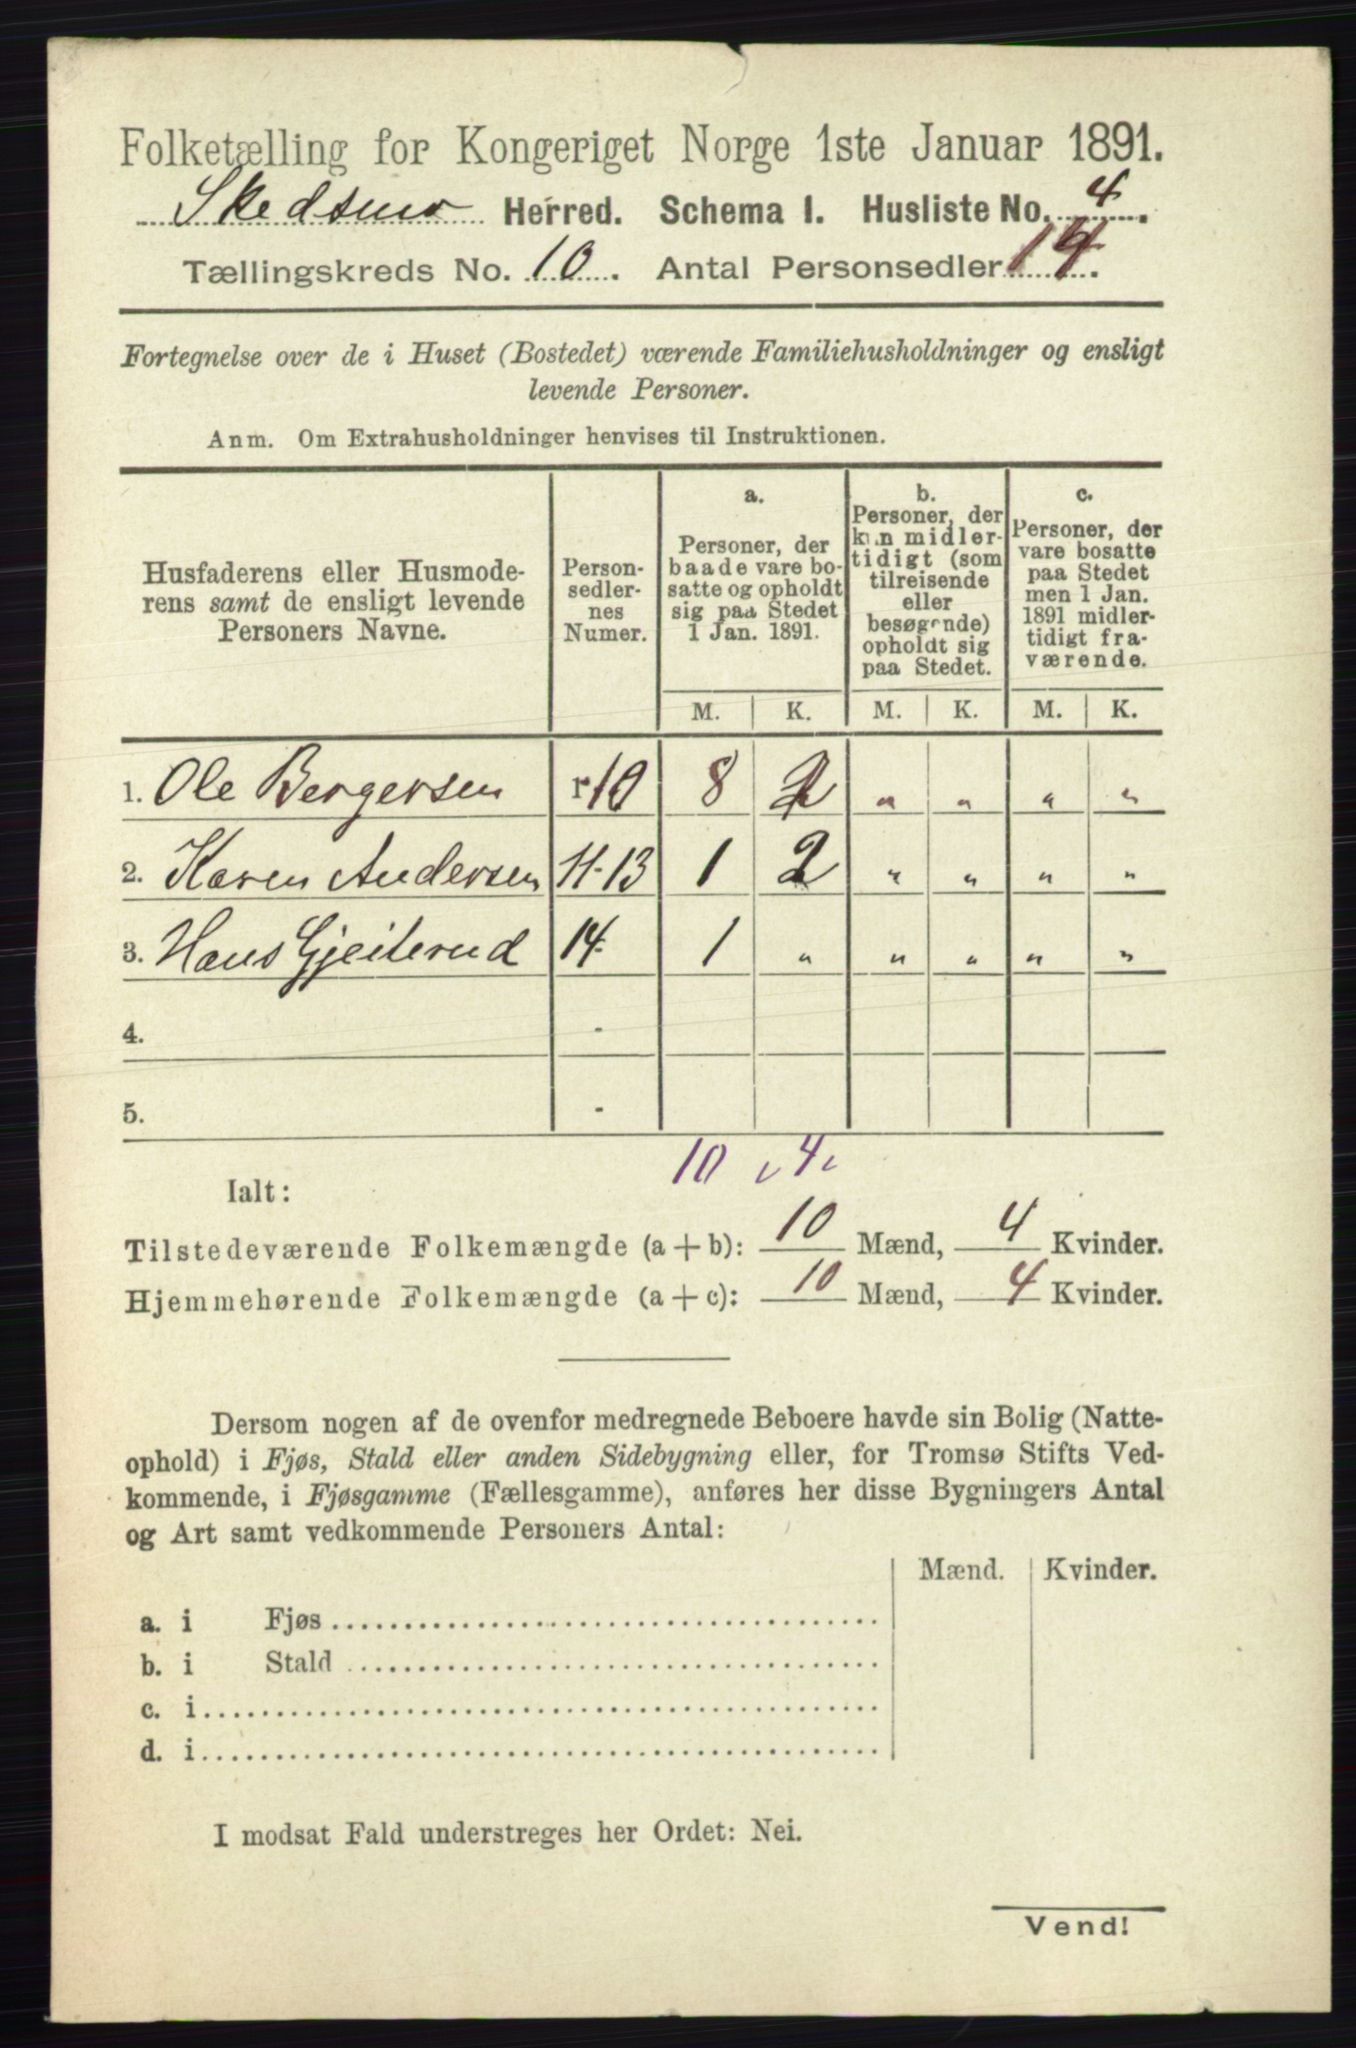 Folketælling for Kongeriget Norge 1ste Januar 1891.
Skedsmo Herred. Schema I. Husliste No. 4.
Tællingskreds No. 10. Antal Personsedler 14.
Fortegnelse over de i Huset (Bostedet) værende Familiehusholdninger og ensligt
levende Personer.
Anm. Om Extrahusholdninger henvises til Instruktionen.
Husfaderens eller Husmode-
rens samt de ensligt levende
Personers Navne.
Person-
sedler-
nes
Numer.
a.
Personer, der
baade vare bo-
satte og opholdt
sig paa Stedet
1 Jan. 1891.
b.
Personer, der
kun midler-
tidigt (som
tilreisende
eller
besøgende)
opholdt sig
paa Stedet.
c.
Personer, der
vare bosatte
paa Stedet
men 1 Jan.
1891 midler-
tidigt fra-
værende.
M. K. M. K. M. K.
1. Ole Bergersen 1-10 8 2 " " " "
2. Karen Andersen 11-13 1 2 " " " "
3. Hans Gjeiterud 14- 1 " " " " "
4. -
5. -
10 4
Ialt:
Tilstedeværende Folkemængde (a + b): 10 Mænd, 4 Kvinder.
Hjemmehørende Folkemængde (a + c): 10 Mænd, 4 Kvinder.
Dersom nogen af de ovenfor medregnede Beboere havde sin Bolig (Natte-
ophold) i Fjøs, Stald eller anden Sidebygning eller, for Tromsø Stifts Ved-
kommende, i Fjøsgamme (Fællesgamme), anføres her disse Bygningers Antal
og Art samt vedkommende Personers Antal:
Mænd. Kvinder.
a. i Fjøs
b. i Stald
c. i
d. i
I modsat Fald understreges her Ordet: Nei.
Vend!